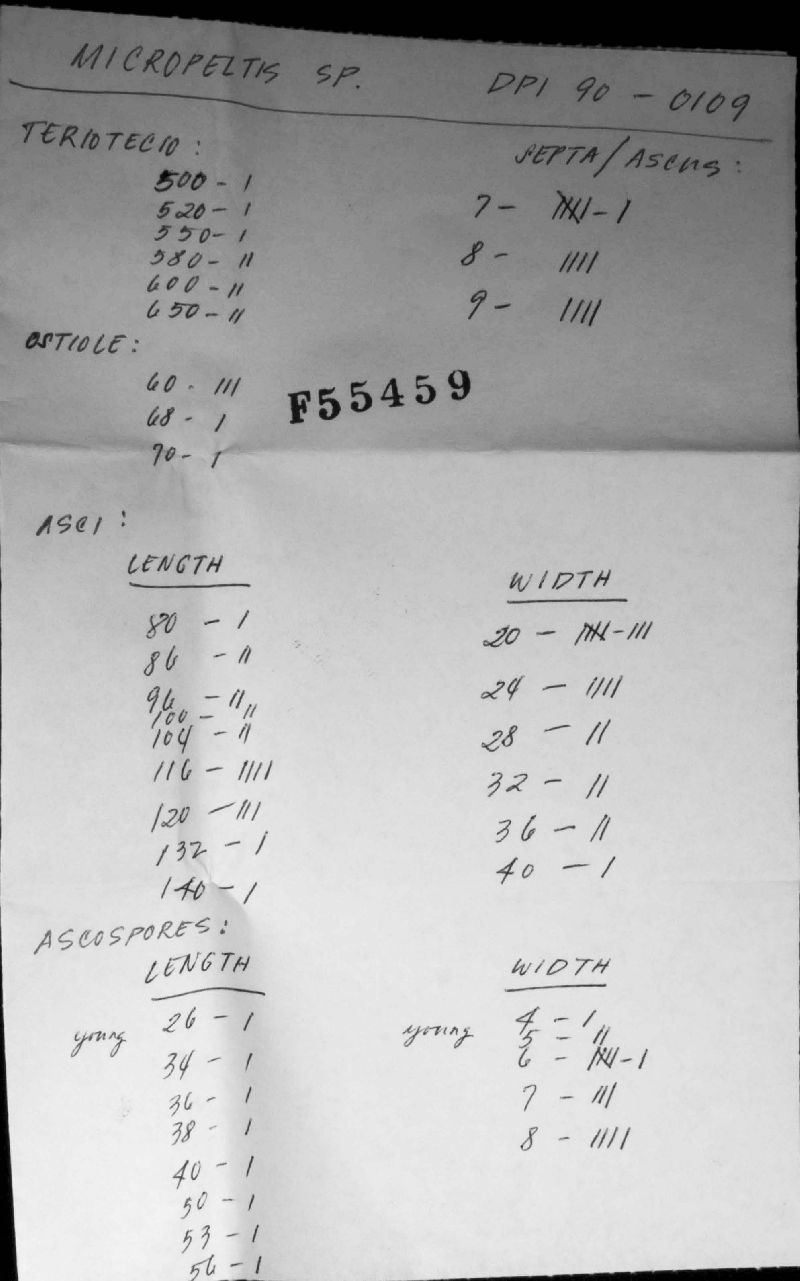 MICROPELTIS SP. DPI 90 - 0109
TERIOTECIO :
500 - I
520 - I
550 - I
580 - II
600 - II
650 - II
SEPTA/ASCUS :
7 - IIII - I
8 - IIII
9 - IIII
OSTIOLE :
60 - III
68 - I
70 - I
F55459
ASCI :
LENGTH
80 - I
86 - II
96 - II
100 - II
104 - II
116 - IIII
120 - III
132 - I
140 - I
WIDTH
20 - IIII - III
24 - IIII
28 - II
32 - II
36 - II
40 - I
ASCOSPORES :
LENGTH
young 26 - I
34 - I
36 - I
38 - I
40 - I
50 - I
53 - I
56 - I
WIDTH
young 4 - I
5 - II
6 - IIII - I
7 - III
8 - IIII